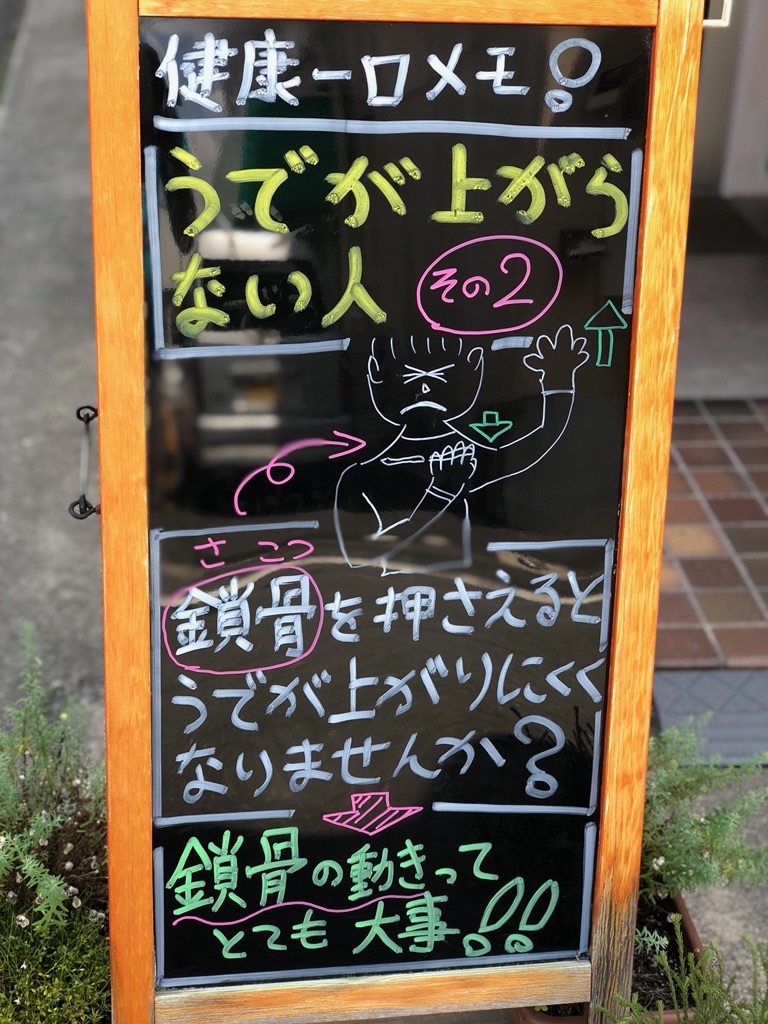 健康一口メモ！
うでが上がら
ない人 その2
さこつ
鎖骨を押さえると
うでが上がりにくく
なりませんか？
鎖骨の動きって
とても大事！！